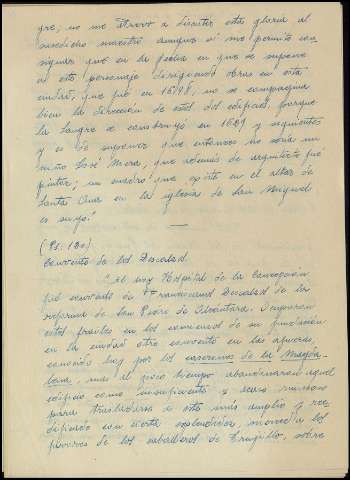 gre, no me atrevo a discutir esta gloria al
susodicho maestro aunque sí me permito con-
signar que en la fecha en que se supone
a este personaje dirigiendo obras en esta
ciudad, que fué en 1698, no se compagina
bien la dirección de este del edificio, porque
la Sangre se construyó en 1629 y siguientes
y es de suponer que entonces no sería un
niño José Mera, que además de arquitecto fué
pintor; un cuadro que existe en el altar de
Santa Ana en la iglesia de San Miguel
es suyo."
(Pg. 180)
Convento de los Descalzos
"El hoy Hospital de la Concepción
fué convento de Franciscanos Descalzos de la
reforma de San Pedro de Alcántara. Ocuparon
estos frailes en los comienzos de su fundación
en la ciudad otro convento en las afueras,
conocido hoy por los caserones de la Magda-
lena, mas al poco tiempo abandonaron aquel
edificio como insuficiente y
para trasladarse a este más amplio y ree-
dificado con cierta esplendidez, merced a los
favores de los caballeros de Trujillo, sobre